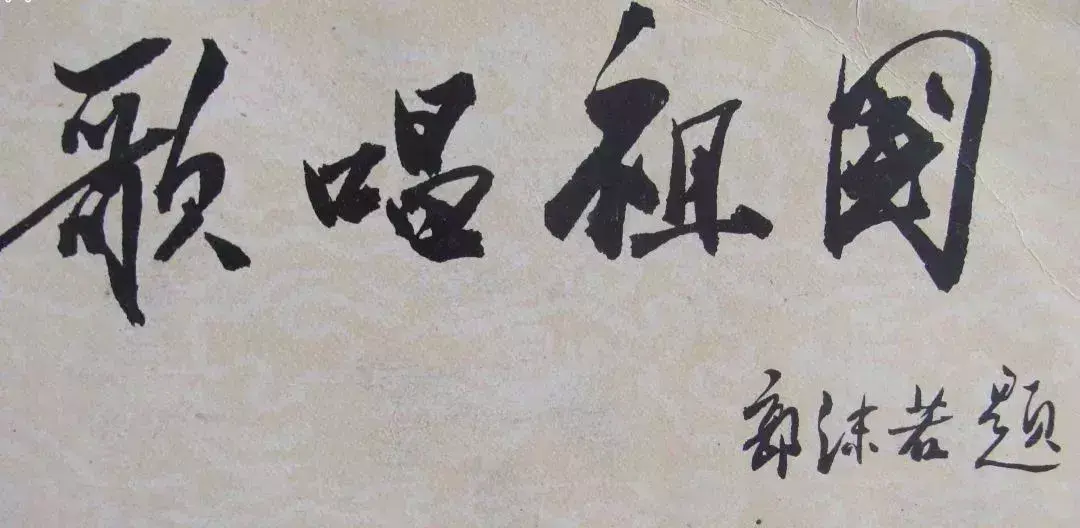 歌唱祖國
郭沫若題